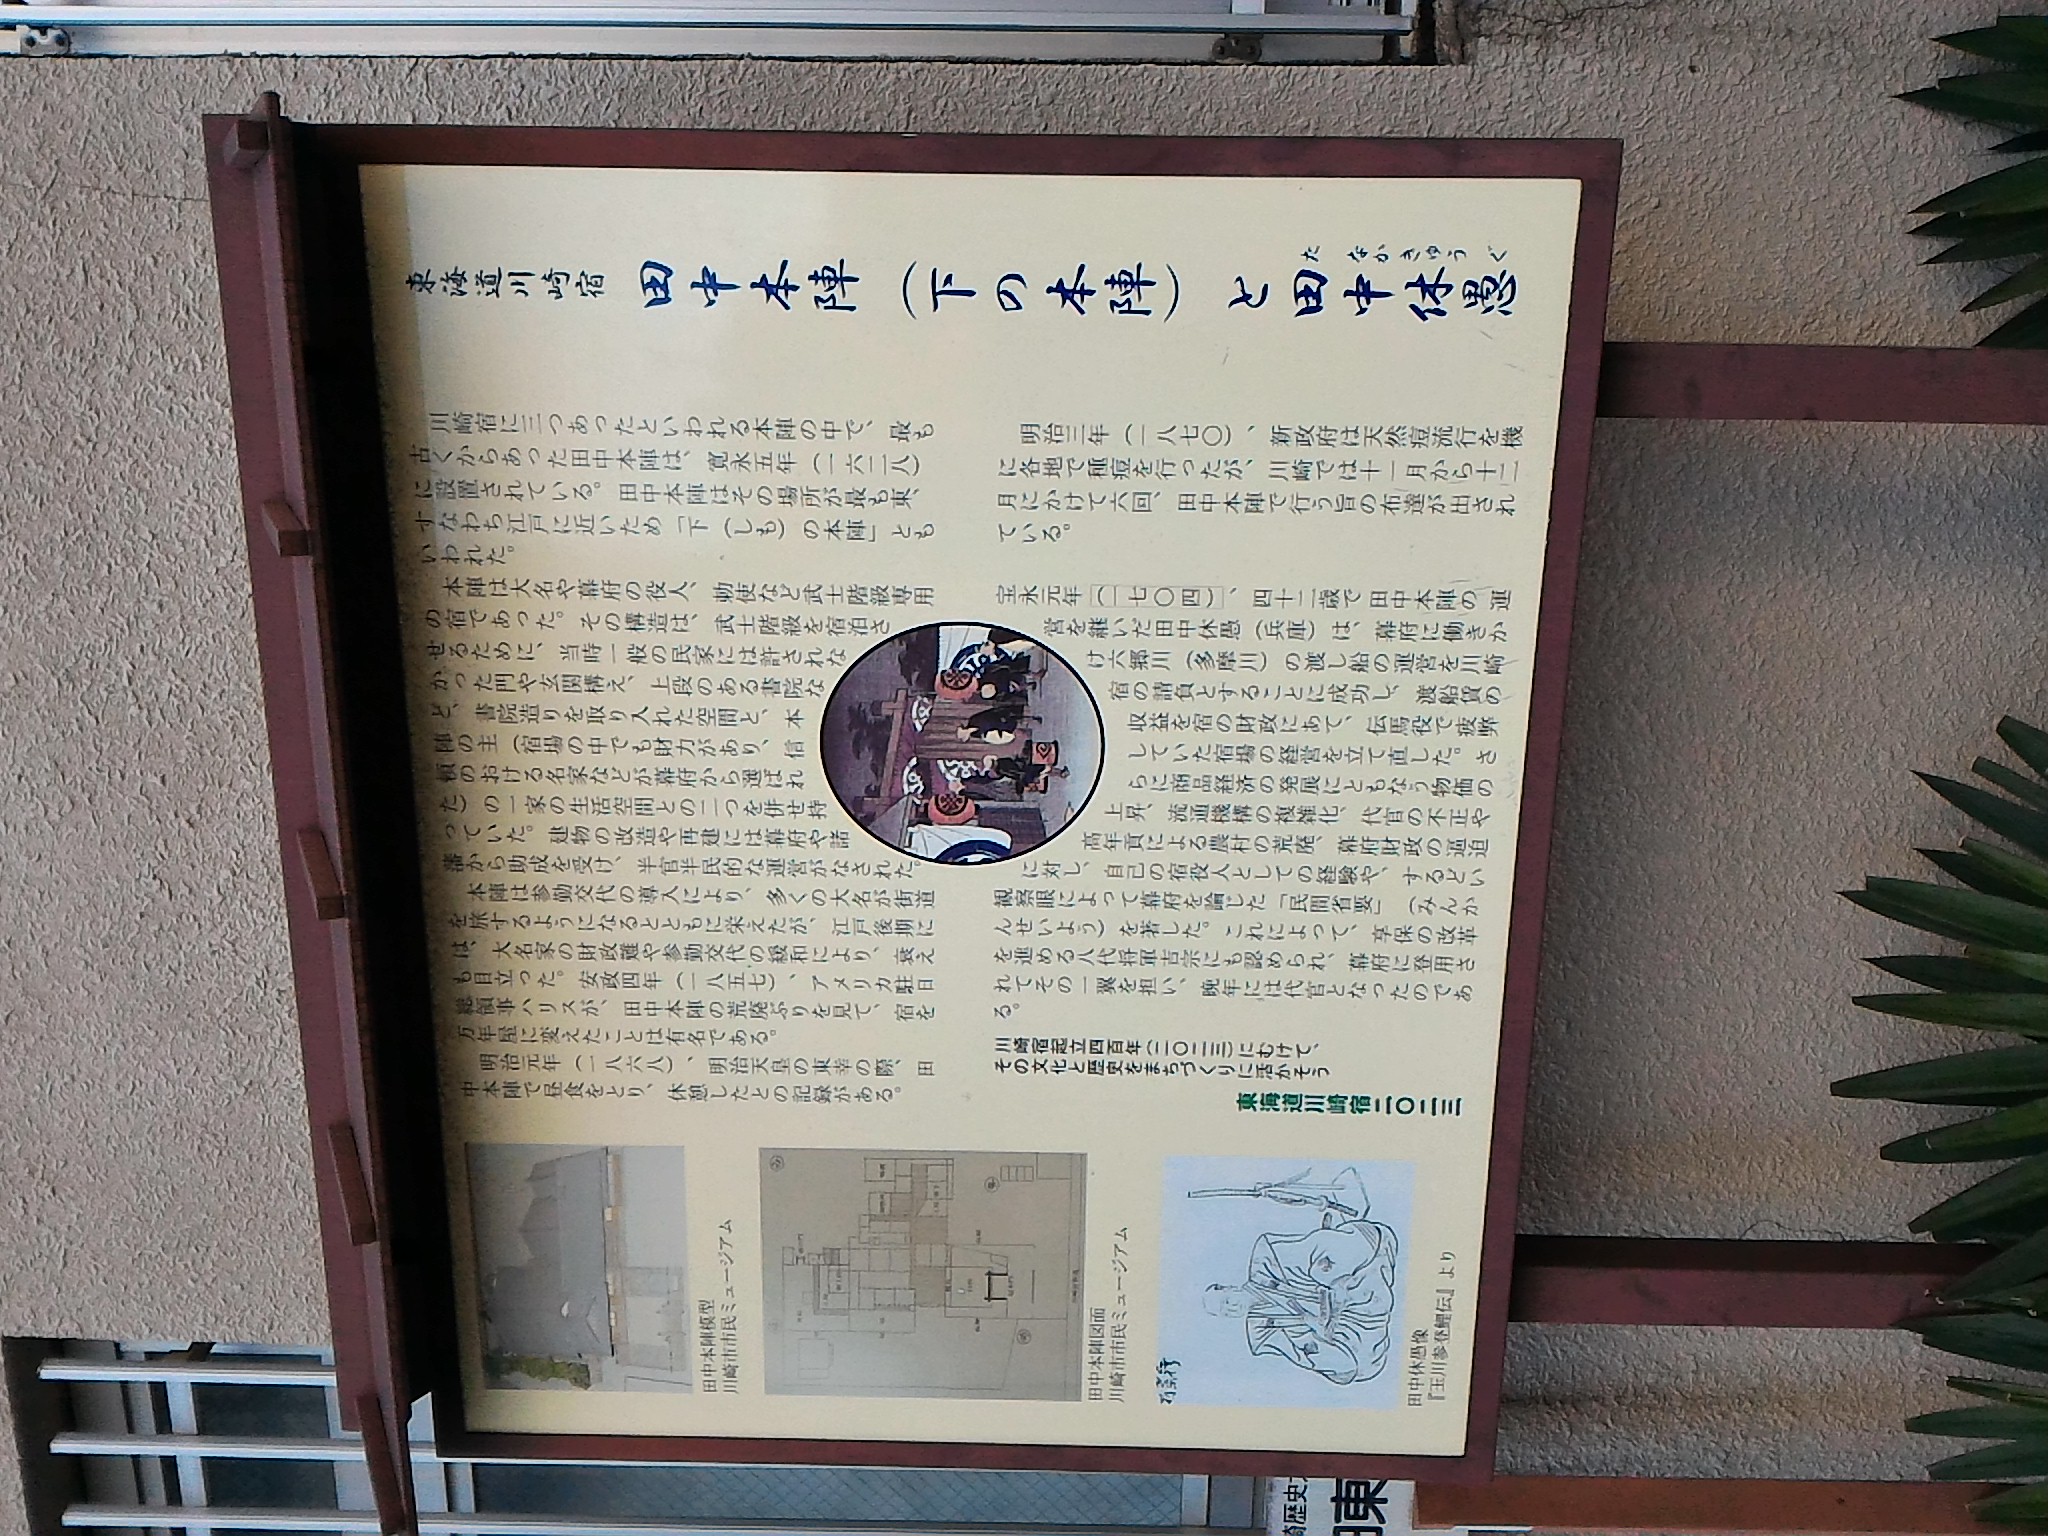 東海道川崎宿 田中本陣(下の本陣)と田中休愚
たなかきゅうぐ
川崎宿に三つあったといわれる本陣の中で、最も
古くからあった田中本陣は、寛永五年(一六二八)
に設置されている。田中本陣はその場所が最も東、
すなわち江戸に近いため「下(しも)の本陣」とも
いわれた。
本陣は大名や幕府の役人、勅使など武士階級専用
の宿であった。その構造は、武士階級を宿泊さ
せるために、当時一般の民家には許されな
かった門や玄関構え、上段のある書院な
ど、書院造りを取り入れた空間と、本
陣の主(宿場の中でも財力があり、信
頼のおける名家などが幕府から選ばれ
た)の一家の生活空間との二つを併せ持
っていた。建物の改造や再建には幕府や諸
藩から助成を受け、半官半民的な運営がなされた。
本陣は参勤交代の導入により、多くの大名が街道
を旅するようになるとともに栄えたが、江戸後期に
は、大名家の財政難や参勤交代の緩和により、衰え
も目立った。安政四年(一八五七)、アメリカ駐日
総領事ハリスが、田中本陣の荒廃ぶりを見て、宿を
万年屋に変えたことは有名である。
明治元年(一八六八)、明治天皇の東幸の際、田
中本陣で昼食をとり、休憩したとの記録がある。
明治三年(一八七〇)、新政府は天然痘流行を機
に各地で種痘を行ったが、川崎では十一月から十二
月にかけて六回、田中本陣で行う旨の布達が出され
ている。
宝永元年(一七〇四)、四十二歳で田中本陣の運
営を継いだ田中休愚(兵庫)は、幕府に働きか
け六郷川(多摩川)の渡し船の運営を川崎
宿の請負とすることに成功し、渡船賃の
収益を宿の財政にあて、伝馬役で疲弊
していた宿場の経営を立て直した。さ
らに商品経済の発展にともなう物価の
上昇、流通機構の複雑化、代官の不正や
高年貢による農村の荒廃、幕府財政の逼迫
に対し、自己の宿役人としての経験や、するどい
観察眼によって幕府を論じた「民間省要」(みんか
んせいよう)を著した。これによって、享保の改革
を進める八代将軍吉宗にも認められ、幕府に登用さ
れてその一翼を担い、晩年には代官となったのであ
る。
川崎宿起立四百年(二〇二三)にむけて、
その文化と歴史をまちづくりに活かそう
東海道川崎宿二〇二三
田中本陣模型
川崎市市民ミュージアム
田中本陣図面
川崎市市民ミュージアム
田中休愚像
『玉川参登鯉伝』より
崎歴史
東